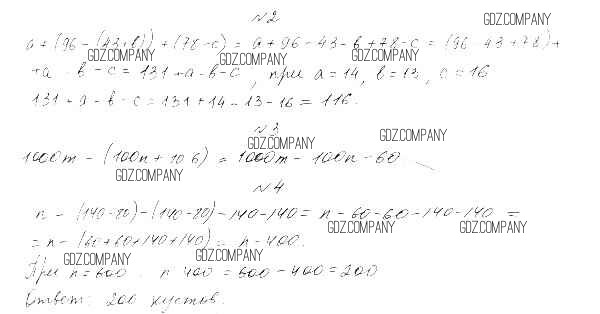 №2
GDZ.COMPANY
a + (96 - (43+в)) + (78-c) = a + 96 - 43 - в + 78 - c = (96 - 43 + 78) +
GDZ.COMPANY GDZ.COMPANY GDZ.COMPANY
+a - в - c = 131 + a - в - c, при a = 14, в = 13, c = 16
131 + a - в - c = 131 + 14 - 13 - 16 = 116.
№3
GDZ.COMPANY GDZ.COMPANY
1000m - (100n + 10 б) = 1000m - 100n - 60
GDZ.COMPANY
№4
n - (140-80) - (140-80) - 140 - 140 = n - 60 - 60 - 140 - 140 =
GDZ.COMPANY GDZ.COMPANY
= n - (60 + 60 + 140 + 140) = n - 400.
GDZ.COMPANY GDZ.COMPANY
При n = 600 n 400 = 600 - 400 = 200
Ответ: 200 кустов.